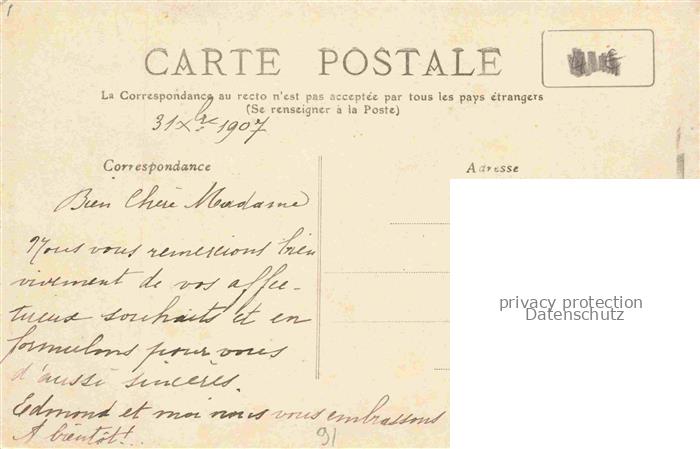 CARTE POSTALE
La Correspondance au recto n'est pas acceptée par tous les pays étrangers
(Se renseigner à la Poste)
31 Xbre 1907
Correspondance
Adresse
Bien Chère Madame
Nous vous remercions bien
vivement de vos affec-
tueux souhaits et en
formulons pour vous
d'aussi sincères.
Edmond et moi nous vous embrassons
A bientôt!..
91
privacy protection
Datenschutz